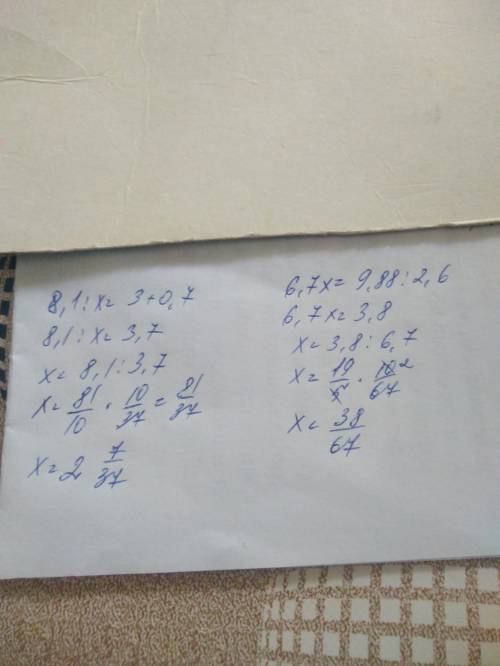 8,1 : x = 3 + 0,7
8,1 : x = 3,7
x = 8,1 : 3,7
x = 81/10 · 10/37 = 81/37
x = 2 7/37
6,7x = 9,88 : 2,6
6,7x = 3,8
x = 3,8 : 6,7
x = 19/5 · 10 2/67
x = 38/67